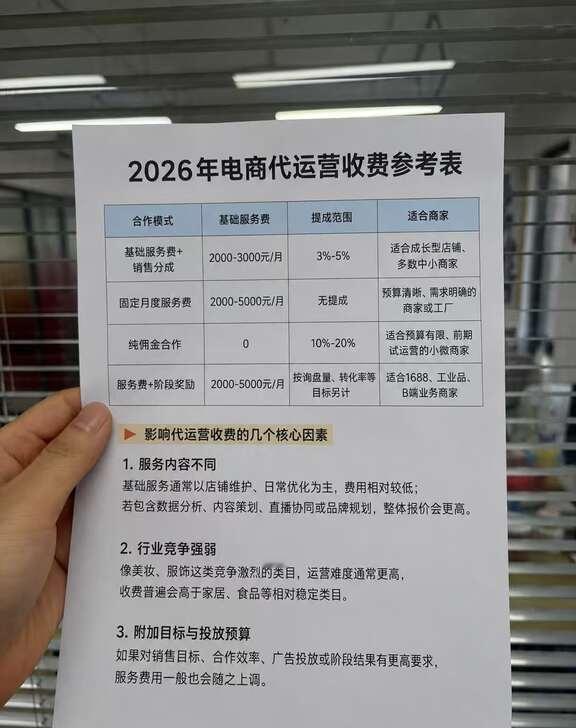 2026年电商代运营收费参考表
合作模式 基础服务费 提成范围 适合商家
基础服务费+
销售分成
2000-3000元/月
3%-5%
适合成长型店铺、
多数中小商家
固定月度服务费
2000-5000元/月
无提成
预算清晰、需求明确的
商家或工厂
纯佣金合作
0
10%-20%
适合预算有限、前期
试运营的小微商家
服务费+阶段奖励
2000-5000元/月
按询盘量、转化率等
目标另计
适合1688、工业品、
B端业务商家
▶ 影响代运营收费的几个核心因素
1. 服务内容不同
基础服务通常以店铺维护、日常优化为主，费用相对较低；
若包含数据分析、内容策划、直播协同或品牌规划，整体报价会更高。
2. 行业竞争强弱
像美妆、服饰这类竞争激烈的类目，运营难度通常更高，
收费普遍会高于家居、食品等相对稳定类目。
3. 附加目标与投放预算
如果对销售目标、合作效率、广告投放或阶段结果有更高要求，
服务费用一般也会随之上调。